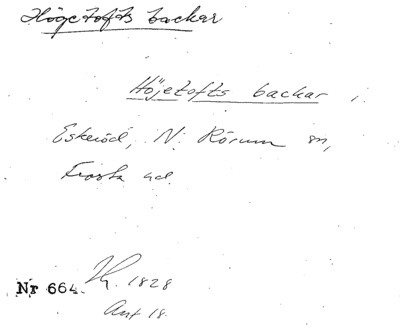 Högetofts backar
Höjetofts backar,
Eskeröd, N. Rörum sn,
Frosta hd.
Nr 664. 1828
Ant 18.